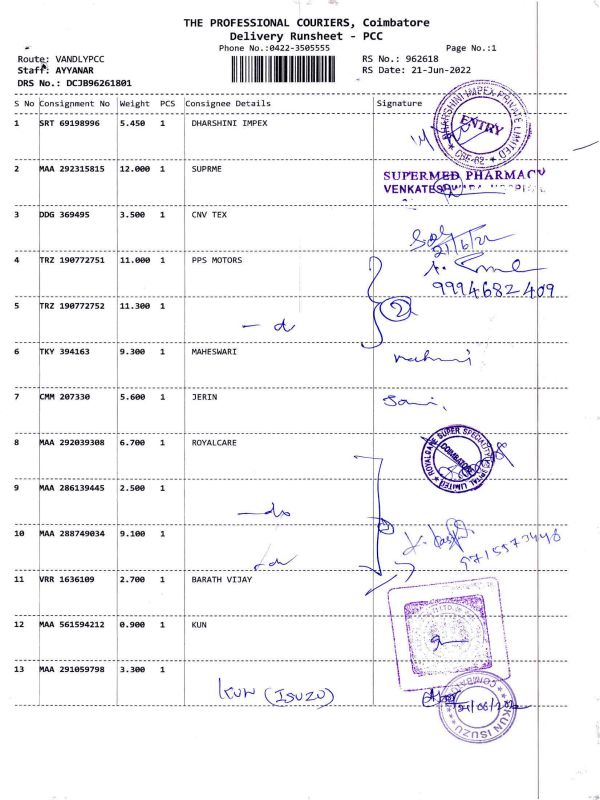 THE PROFESSIONAL COURIERS, Coimbatore
Delivery Runsheet - PCC
Phone No.:0422-3505555 Page No.:1
Route: VANDLYPCC RS No.: 962618
Staff: AYYANAR RS Date: 21-Jun-2022
DRS No.: DCJB96261801
S No Consignment No Weight PCS Consignee Details Signature
1 SRT 69198996 5.450 1 DHARSHINI IMPEX
DHARSHINI IMPEX PRIVATE LIMITED
ENTRY
CBE-62
2 MAA 292315815 12.000 1 SUPRME
SUPERMED PHARMACY
3 DDG 369495 3.500 1 CNV TEX
21/6/22
4 TRZ 190772751 11.000 1 PPS MOTORS
9994682409
5 TRZ 190772752 11.300 1
2
6 TKY 394163 9.300 1 MAHESWARI
7 CMM 207330 5.600 1 JERIN
8 MAA 292039308 6.700 1 ROYALCARE
ROYALCARE SUPER SPECIALITY HOSPITAL LIMITED
COIMBATORE
9 MAA 286139445 2.500 1
-do
10 MAA 288749034 9.100 1
11 VRR 1636109 2.700 1 BARATH VIJAY
12 MAA 561594212 0.900 1 KUN
13 MAA 291059798 3.300 1
KUN (ISUZU)
KUN ISUZU